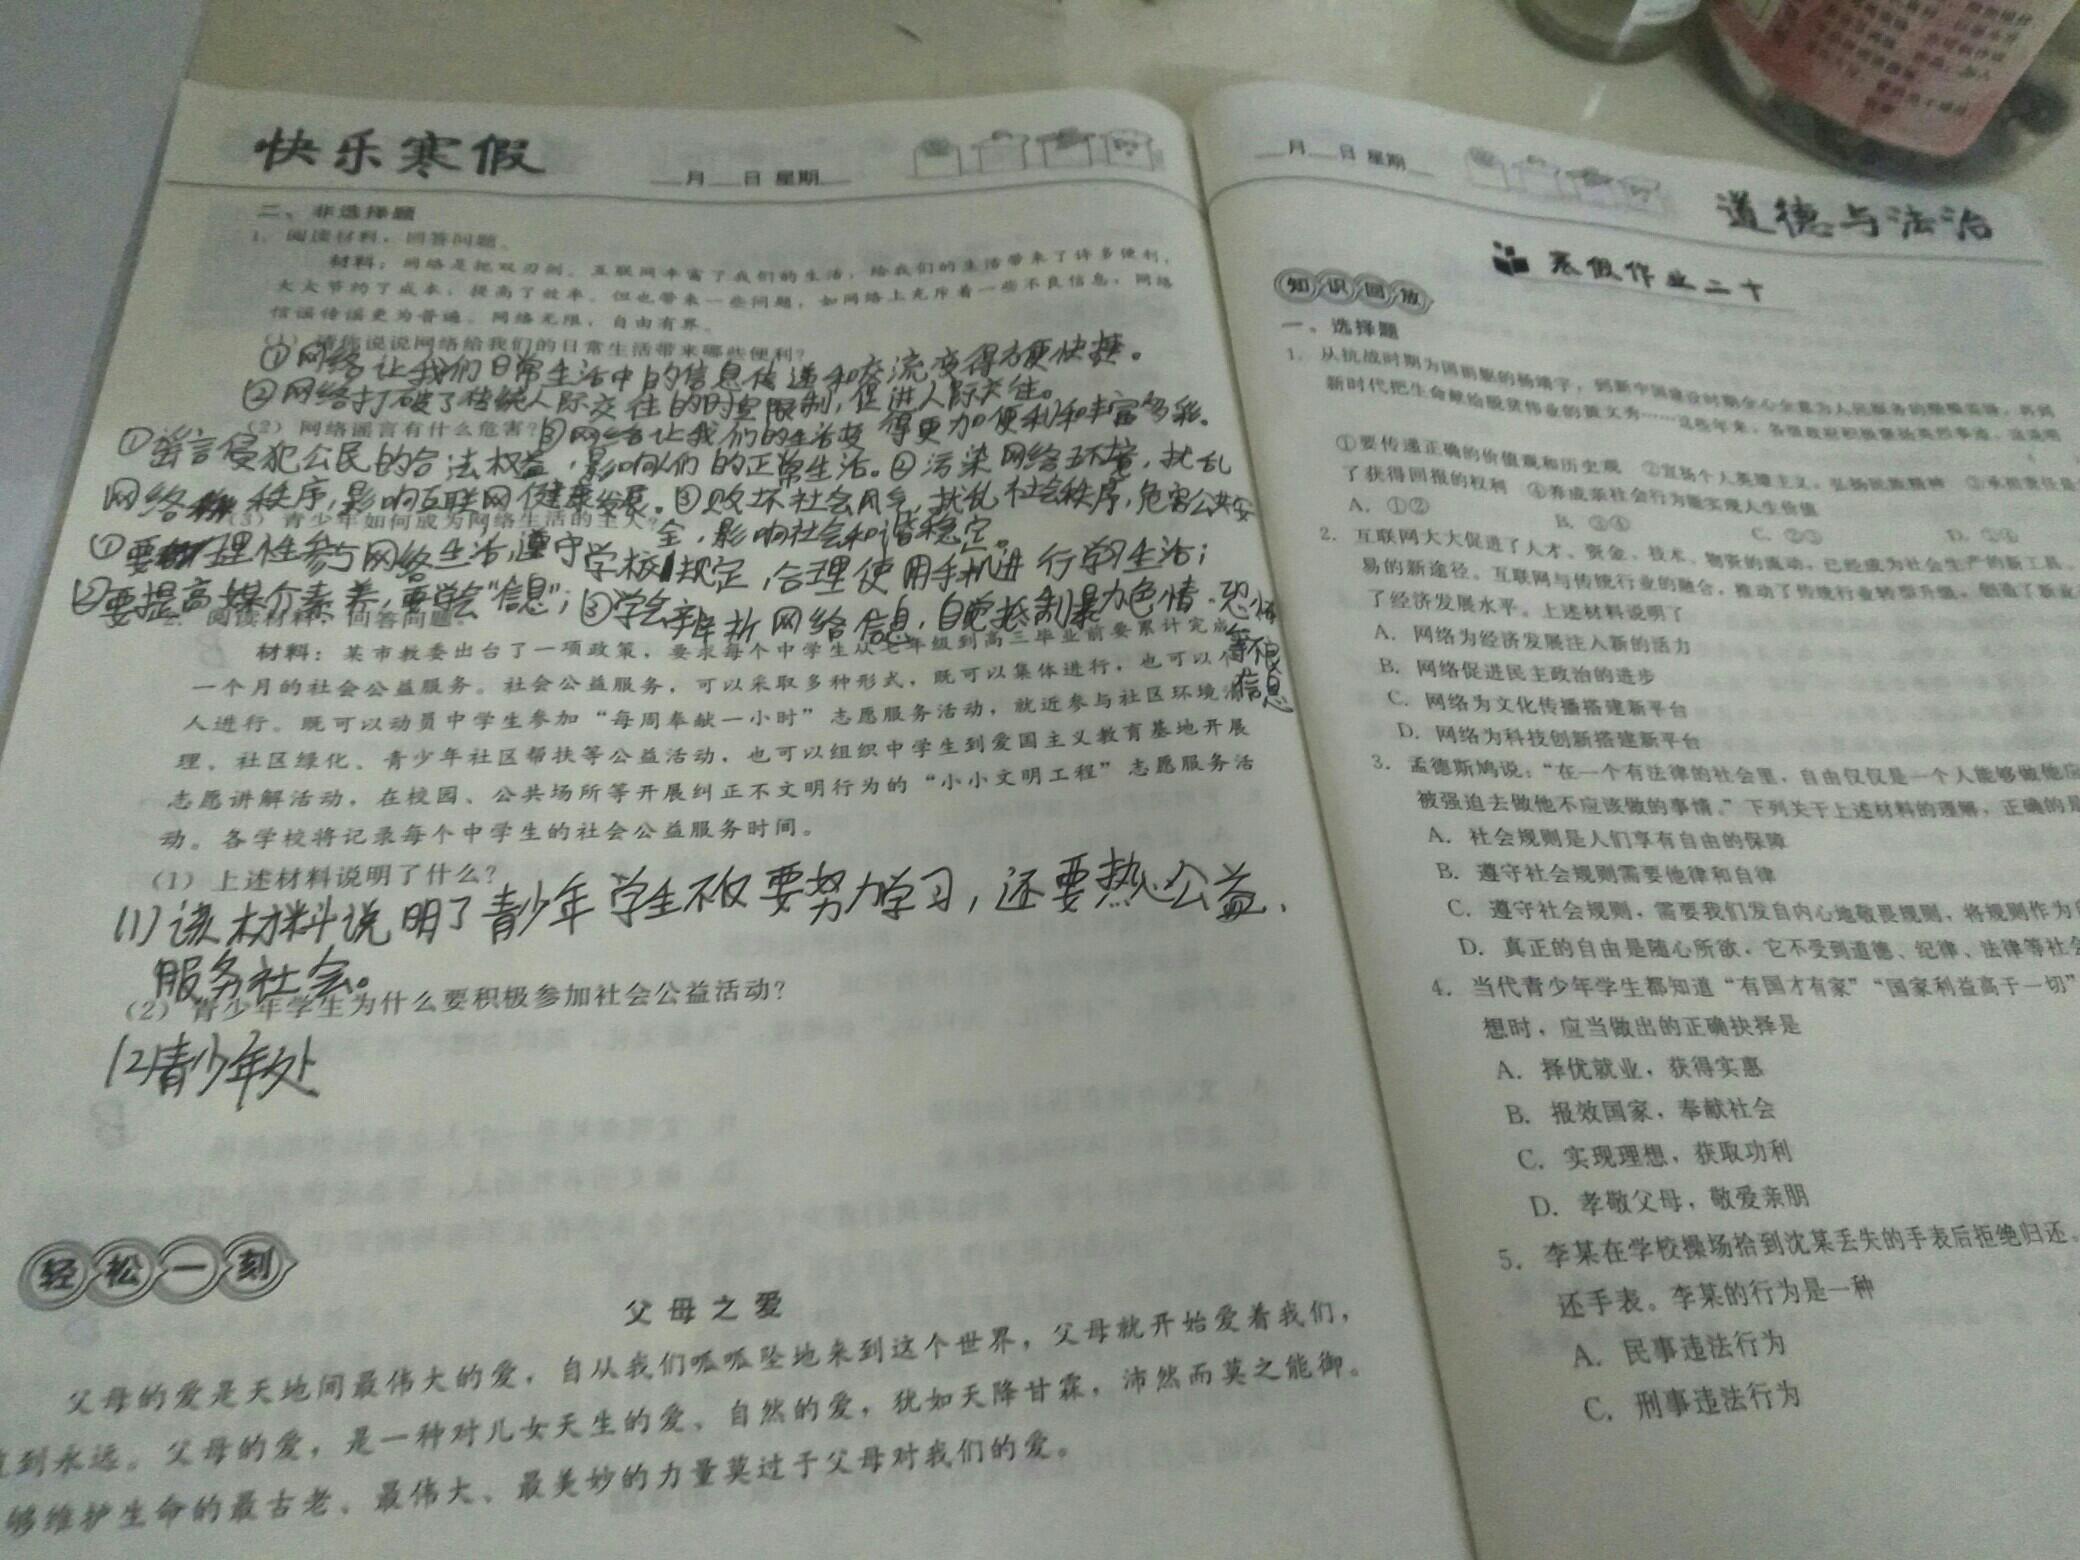 快乐寒假
月 日 星期
二、非选择题
1. 阅读材料，回答问题。
材料：网络是把双刃剑。互联网丰富了我们的生活，给我们的生活带来了许多便利，
大大节约了成本，提高了效率。但也带来一些问题，如网络上充斥着一些不良信息，网络
信谣传谣更为普遍。网络无限，自由有界。
(1) 请你说说网络给我们的日常生活带来哪些便利？
①网络让我们日常生活中的信息传递和交流变得方便快捷。
②网络打破了传统人际交往的时空限制，促进人际交往。
(2) 网络谣言有什么危害？
③网络让我们的生活变得更加便利和丰富多彩。
①谣言侵犯公民的合法权益，影响人们的正常生活。②污染网络环境，扰乱
网络秩序，影响互联网健康发展。③败坏社会风气，扰乱社会秩序，危害公共安
全，影响社会和谐稳定。
(3) 青少年如何成为网络生活的主人？
①要理性参与网络生活，遵守学校规定，合理使用手机进行学习生活；
②要提高媒介素养，要学会“信息”；③学会辨析网络信息，自觉抵制暴力色情、恐怖
等不良
信息
2. 阅读材料，回答问题。
材料：某市教委出台了一项政策，要求每个中学生从七年级到高三毕业前要累计完成
一个月的社会公益服务。社会公益服务，可以采取多种形式，既可以集体进行，也可以个
人进行。既可以动员中学生参加“每周奉献一小时”志愿服务活动，就近参与社区环境清
理、社区绿化、青少年社区帮扶等公益活动，也可以组织中学生到爱国主义教育基地开展
志愿讲解活动，在校园、公共场所等开展纠正不文明行为的“小小文明工程”志愿服务活
动。各学校将记录每个中学生的社会公益服务时间。
(1) 上述材料说明了什么？
(1) 该材料说明了青少年学生不仅要努力学习，还要热心公益，
服务社会。
(2) 青少年学生为什么要积极参加社会公益活动？
(2) 青少年处
轻松一刻
父母之爱
父母的爱是天地间最伟大的爱，自从我们呱呱坠地来到这个世界，父母就开始爱着我们，
到永远。父母的爱，是一种对儿女天生的爱、自然的爱，犹如天降甘霖，沛然而莫之能御。
够维护生命的最古老、最伟大、最美妙的力量莫过于父母对我们的爱。
月 日 星期
道德与法治
寒假作业二十
知识回放
一、选择题
1. 从抗战时期为国捐躯的杨靖宇，到新中国建设时期全心全意为人民服务的
新时代把生命献给脱贫伟业的黄文秀……这些年来，各级政府积极褒扬英烈事迹，这说明
①要传递正确的价值观和历史观 ②宣扬个人英雄主义，弘扬民族精神 ③承担责任是
了获得回报的权利 ④养成亲社会行为能实现人生价值
A. ①② B. ③④ C. ②③ D. ①④
2. 互联网大大促进了人才、资金、技术、物资的流动，已经成为社会生产的新工具、
易的新途径。互联网与传统行业的融合，推动了传统行业转型升级，创造了新业
了经济发展水平。上述材料说明了
A. 网络为经济发展注入新的活力
B. 网络促进民主政治的进步
C. 网络为文化传播搭建新平台
D. 网络为科技创新搭建新平台
3. 孟德斯鸠说：“在一个有法律的社会里，自由仅仅是一个人能够做他应
被强迫去做他不应该做的事情。”下列关于上述材料的理解，正确的是
A. 社会规则是人们享有自由的保障
B. 遵守社会规则需要他律和自律
C. 遵守社会规则，需要我们发自内心地敬畏规则，将规则作为
D. 真正的自由是随心所欲，它不受到道德、纪律、法律等社会
4. 当代青少年学生都知道“有国才有家”“国家利益高于一切”
想时，应当做出的正确抉择是
A. 择优就业，获得实惠
B. 报效国家，奉献社会
C. 实现理想，获取功利
D. 孝敬父母，敬爱亲朋
5. 李某在学校操场拾到沈某丢失的手表后拒绝归还。
还手表。李某的行为是一种
A. 民事违法行为
C. 刑事违法行为